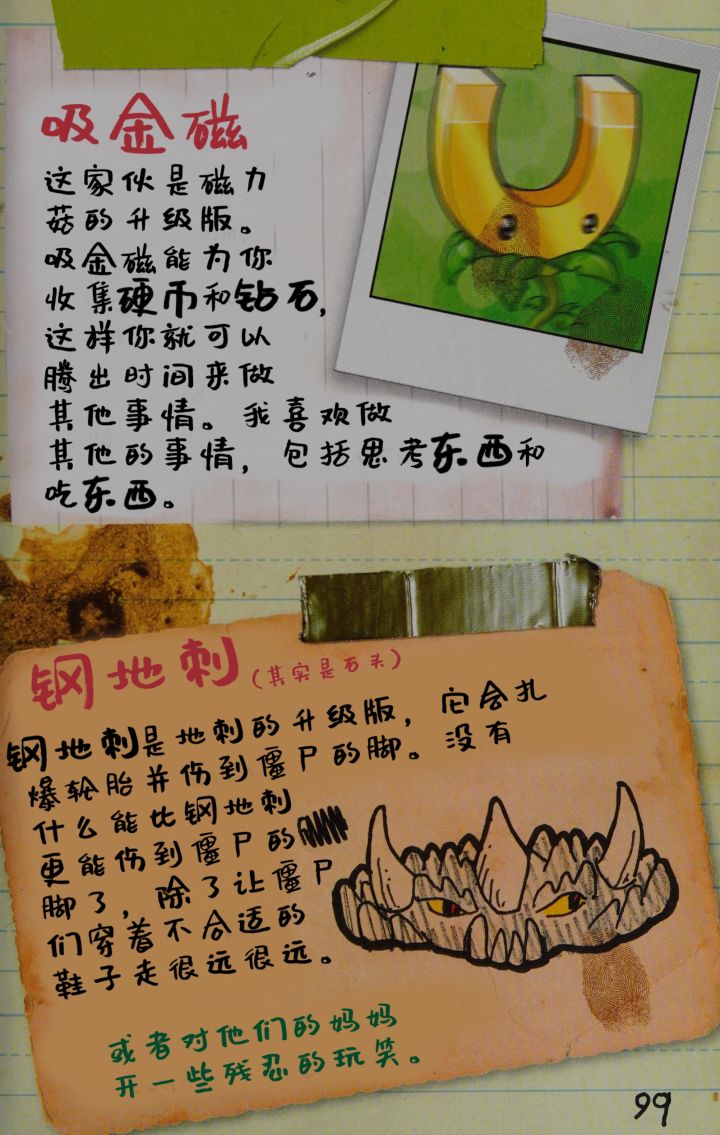 吸金磁
这家伙是磁力
菇的升级版。
吸金磁能为你
收集硬币和钻石，
这样你就可以
腾出时间来做
其他事情。我喜欢做
其他的事情，包括思考东西和
吃东西。
钢地刺（其实是石头）
钢地刺是地刺的升级版，它会扎
爆轮胎并伤到僵尸的脚。没有
什么能比钢地刺
更能伤到僵尸的
脚了，除了让僵尸
们穿着不合适的
鞋子走很远很远。
或者对他们的妈妈
开一些残忍的玩笑。
99